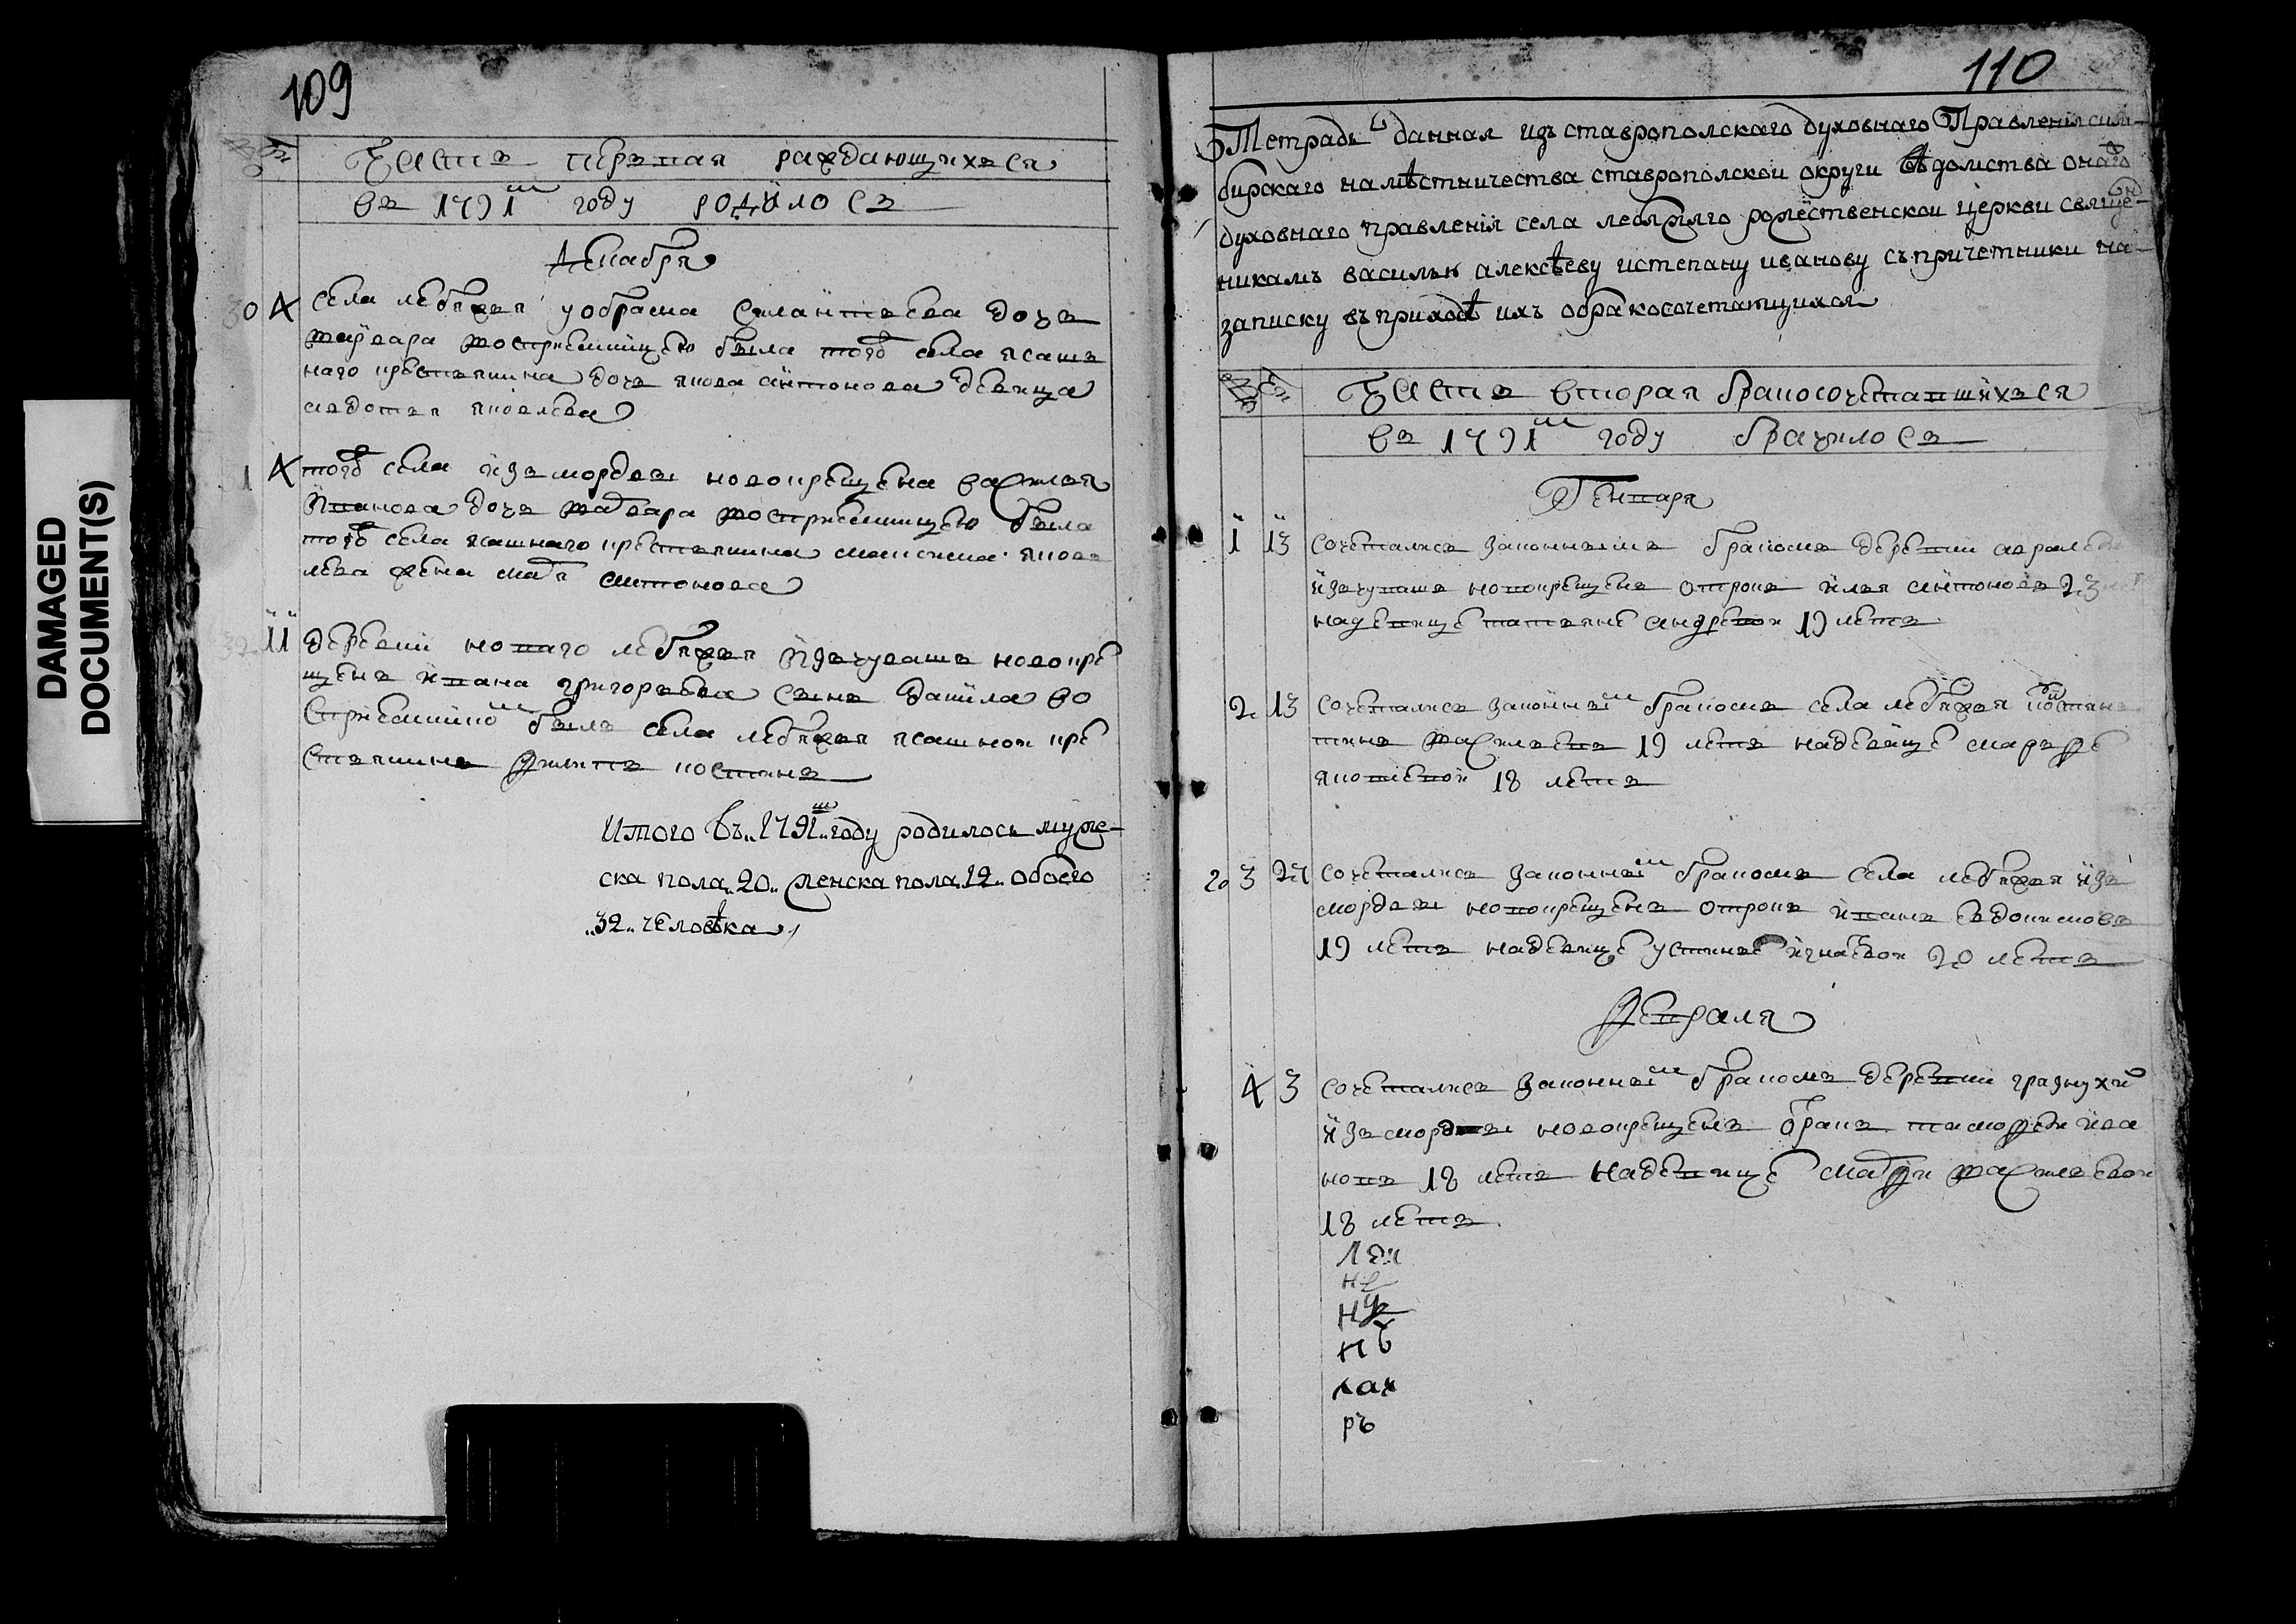 DAMAGED
DOCUMENT(S)
109
Часть первая раждающихъся
въ 1791м году родилось
Декабря
30 4 села лебяжья у абрама силантьева дочь
варвара восприемницею была тогоже села ясашъ
наго крестьянина дочь якова антонова девица
авдотья яковлева
1 4 тогоже села изъ мордвы новокрещена василья
иванова дочь варвара восприемницею была
тогоже села ясашнаго крестьянина максима яков
лева жена марья антонова
32 11 деревни новаго лебяжья изъ чувашъ новокре
щенъ ивана григорьева сынъ данила во
сприемникомъ былъ села лебяжья ясашной кре
стьянинъ филипъ костинъ
Итого въ..1791м..году родилось муже-
ска пола..20.. женска пола..12.. обоего
..32.. человѣка
110
Тетрадь данная изъ ставрополскаго духовнаго Правленія сим-
бирскаго намѣстничества ставрополской округи вѣдомства онаго
духовнаго правленія села лебяжяго рожественской церкви священ-
никамъ василью алексѣеву и степану иванову съ причетники на
записку въ приходѣ ихъ обракосочетающихся
Часть вторая бракосочетавшихъся
въ 1791м году брачилось
Генваря
1 13 сочетались законнымъ бракомъ деревни
изъ чувашъ новокрещенъ отрокъ илья антоновъ 23
на девице татьяне андревой 19 летъ
2 13 сочетались законнымъ бракомъ села лебяжья
васильевъ 19 летъ на девице марье
18 летъ
20 3 27 сочетались законнымъ бракомъ села лебяжья изъ
мордвы новокрещенъ отрокъ иванъ евдокимовъ
19 летъ на девице устинье игнатевой 20 летъ
Февраля
4 3 сочетались законнымъ бракомъ деревни грязнухи
изъ мордвы новокрещенъ отрокъ тимофей ива
новъ 18 летъ на девице марфи васильевой
18 летъ